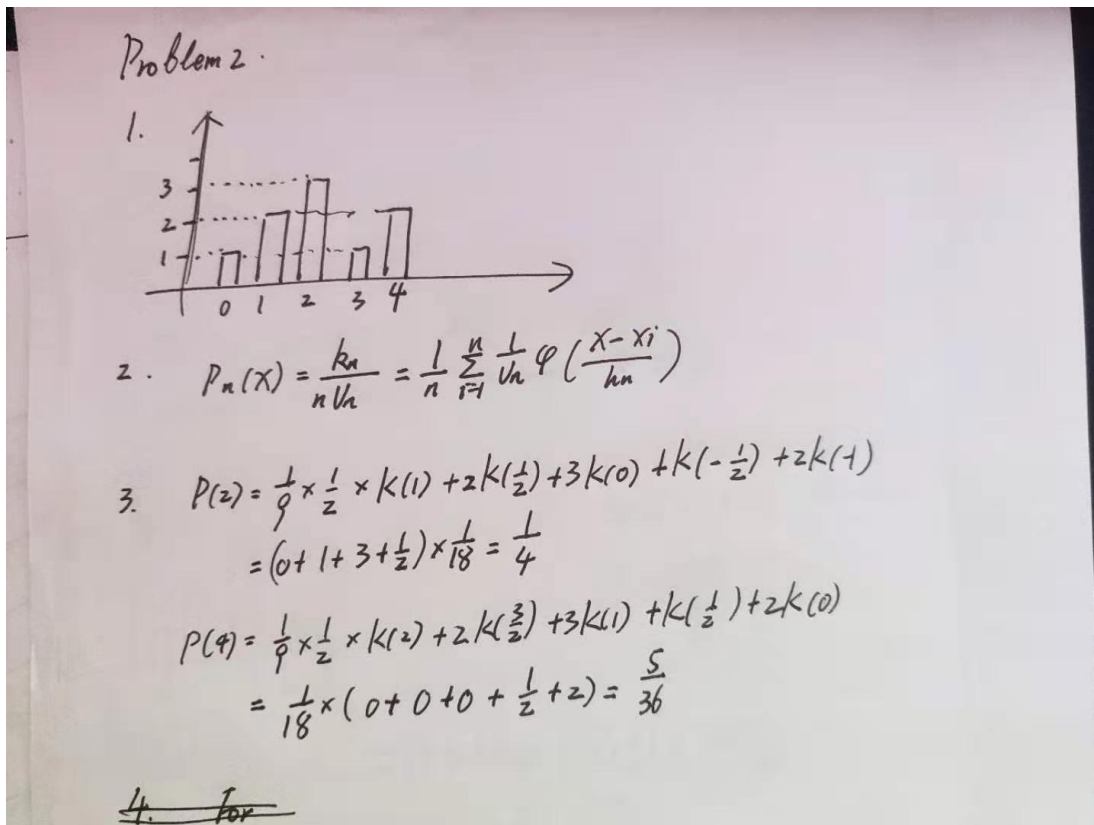 Problem 2.
1.
3
2
1
0 1 2 3 4
2. Pn(x) = kn / nVn = 1/n Σ_{i=1}^{n} 1/Vn φ((x-xi)/hn)
3. P(2) = 1/9 × 1/2 × k(1) + 2k(1/2) + 3k(0) + k(-1/2) + 2k(-1)
= (0 + 1 + 3 + 1/2) × 1/18 = 1/4
P(4) = 1/9 × 1/2 × k(2) + 2k(3/2) + 3k(1) + k(1/2) + 2k(0)
= 1/18 × (0 + 0 + 0 + 1/2 + 2) = 5/36
4. For